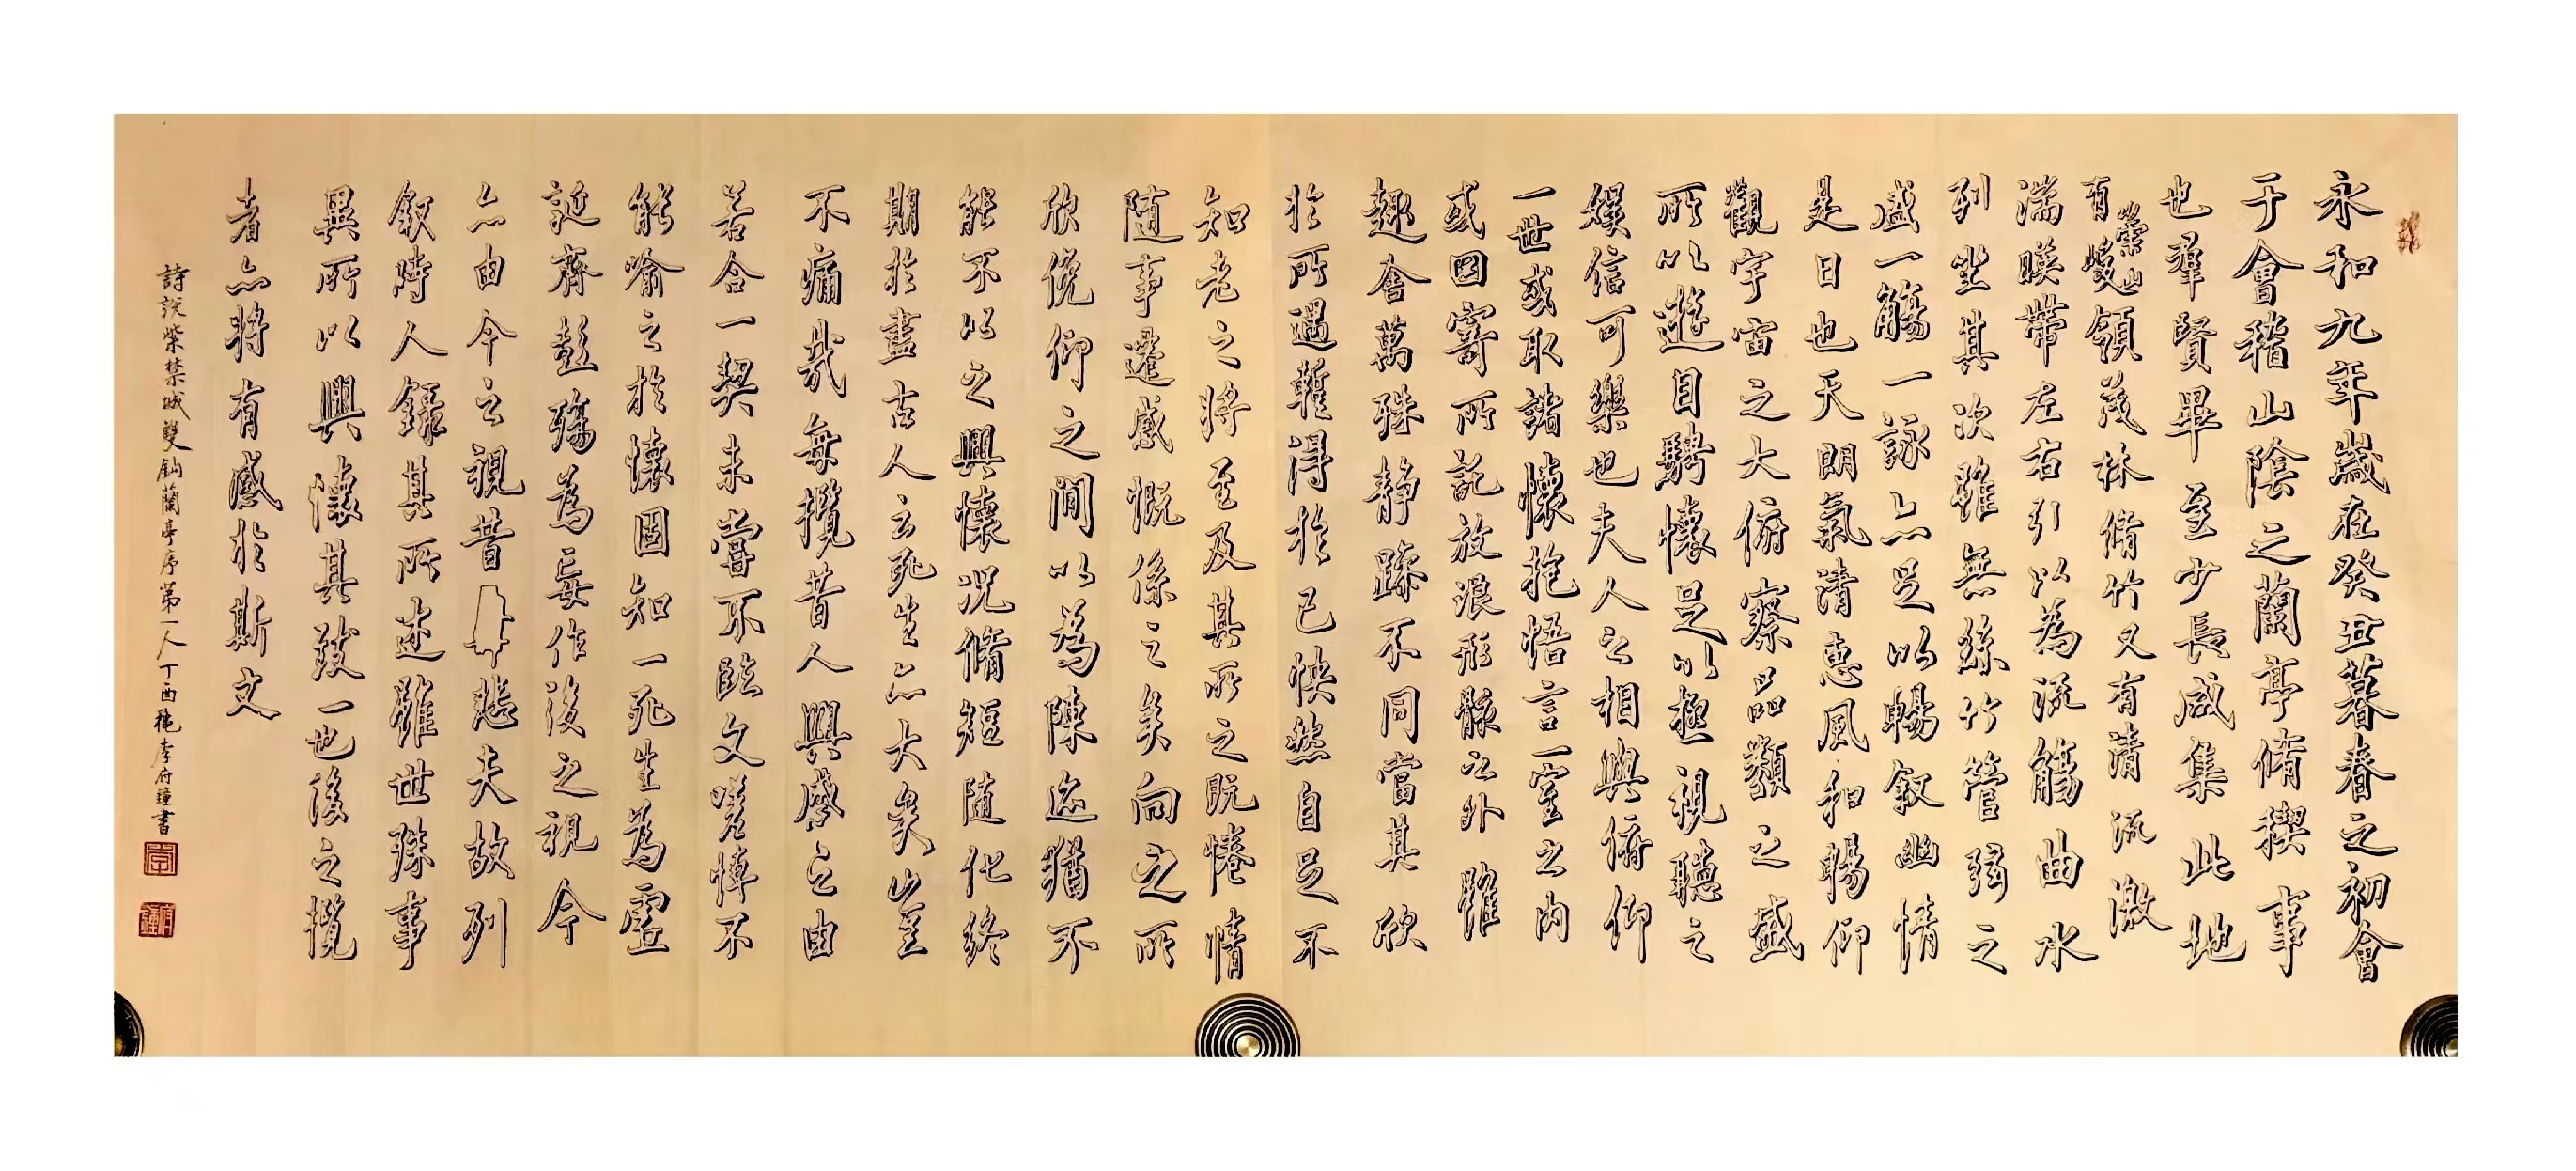 永和九年歲在癸丑暮春之初會
于會稽山陰之蘭亭脩稧事
也羣賢畢至少長咸集此地
有崇山峻領茂林脩竹又有清流激
湍暎帶左右引以為流觴曲水
列坐其次雖無絲竹管弦之
盛一觴一詠亦足以暢叙幽情
是日也天朗氣清惠風和暢仰
觀宇宙之大俯察品類之盛
所以遊目騁懷足以極視聽之
娛信可樂也夫人之相與俯仰
一世或取諸懷抱悟言一室之內
或因寄所託放浪形骸之外雖
趣舍萬殊靜躁不同當其欣
於所遇暫得於己怏然自足不
知老之將至及其所之既惓情
隨事遷感慨係之矣向之所
欣俛仰之間以為陳迹猶不
能不以之興懷況脩短隨化終
期於盡古人云死生亦大矣豈
不痛哉每攬昔人興感之由
若合一契未嘗不臨文嗟悼不
能喻之於懷固知一死生為虛
誕齊彭殤為妄作後之視今
亦由今之視昔悲夫故列
叙時人錄其所述雖世殊事
異所以興懷其致一也後之攬
者亦將有感於斯文
詩說紫禁城雙鈎蘭亭序第一人丁酉龝李府鐘書